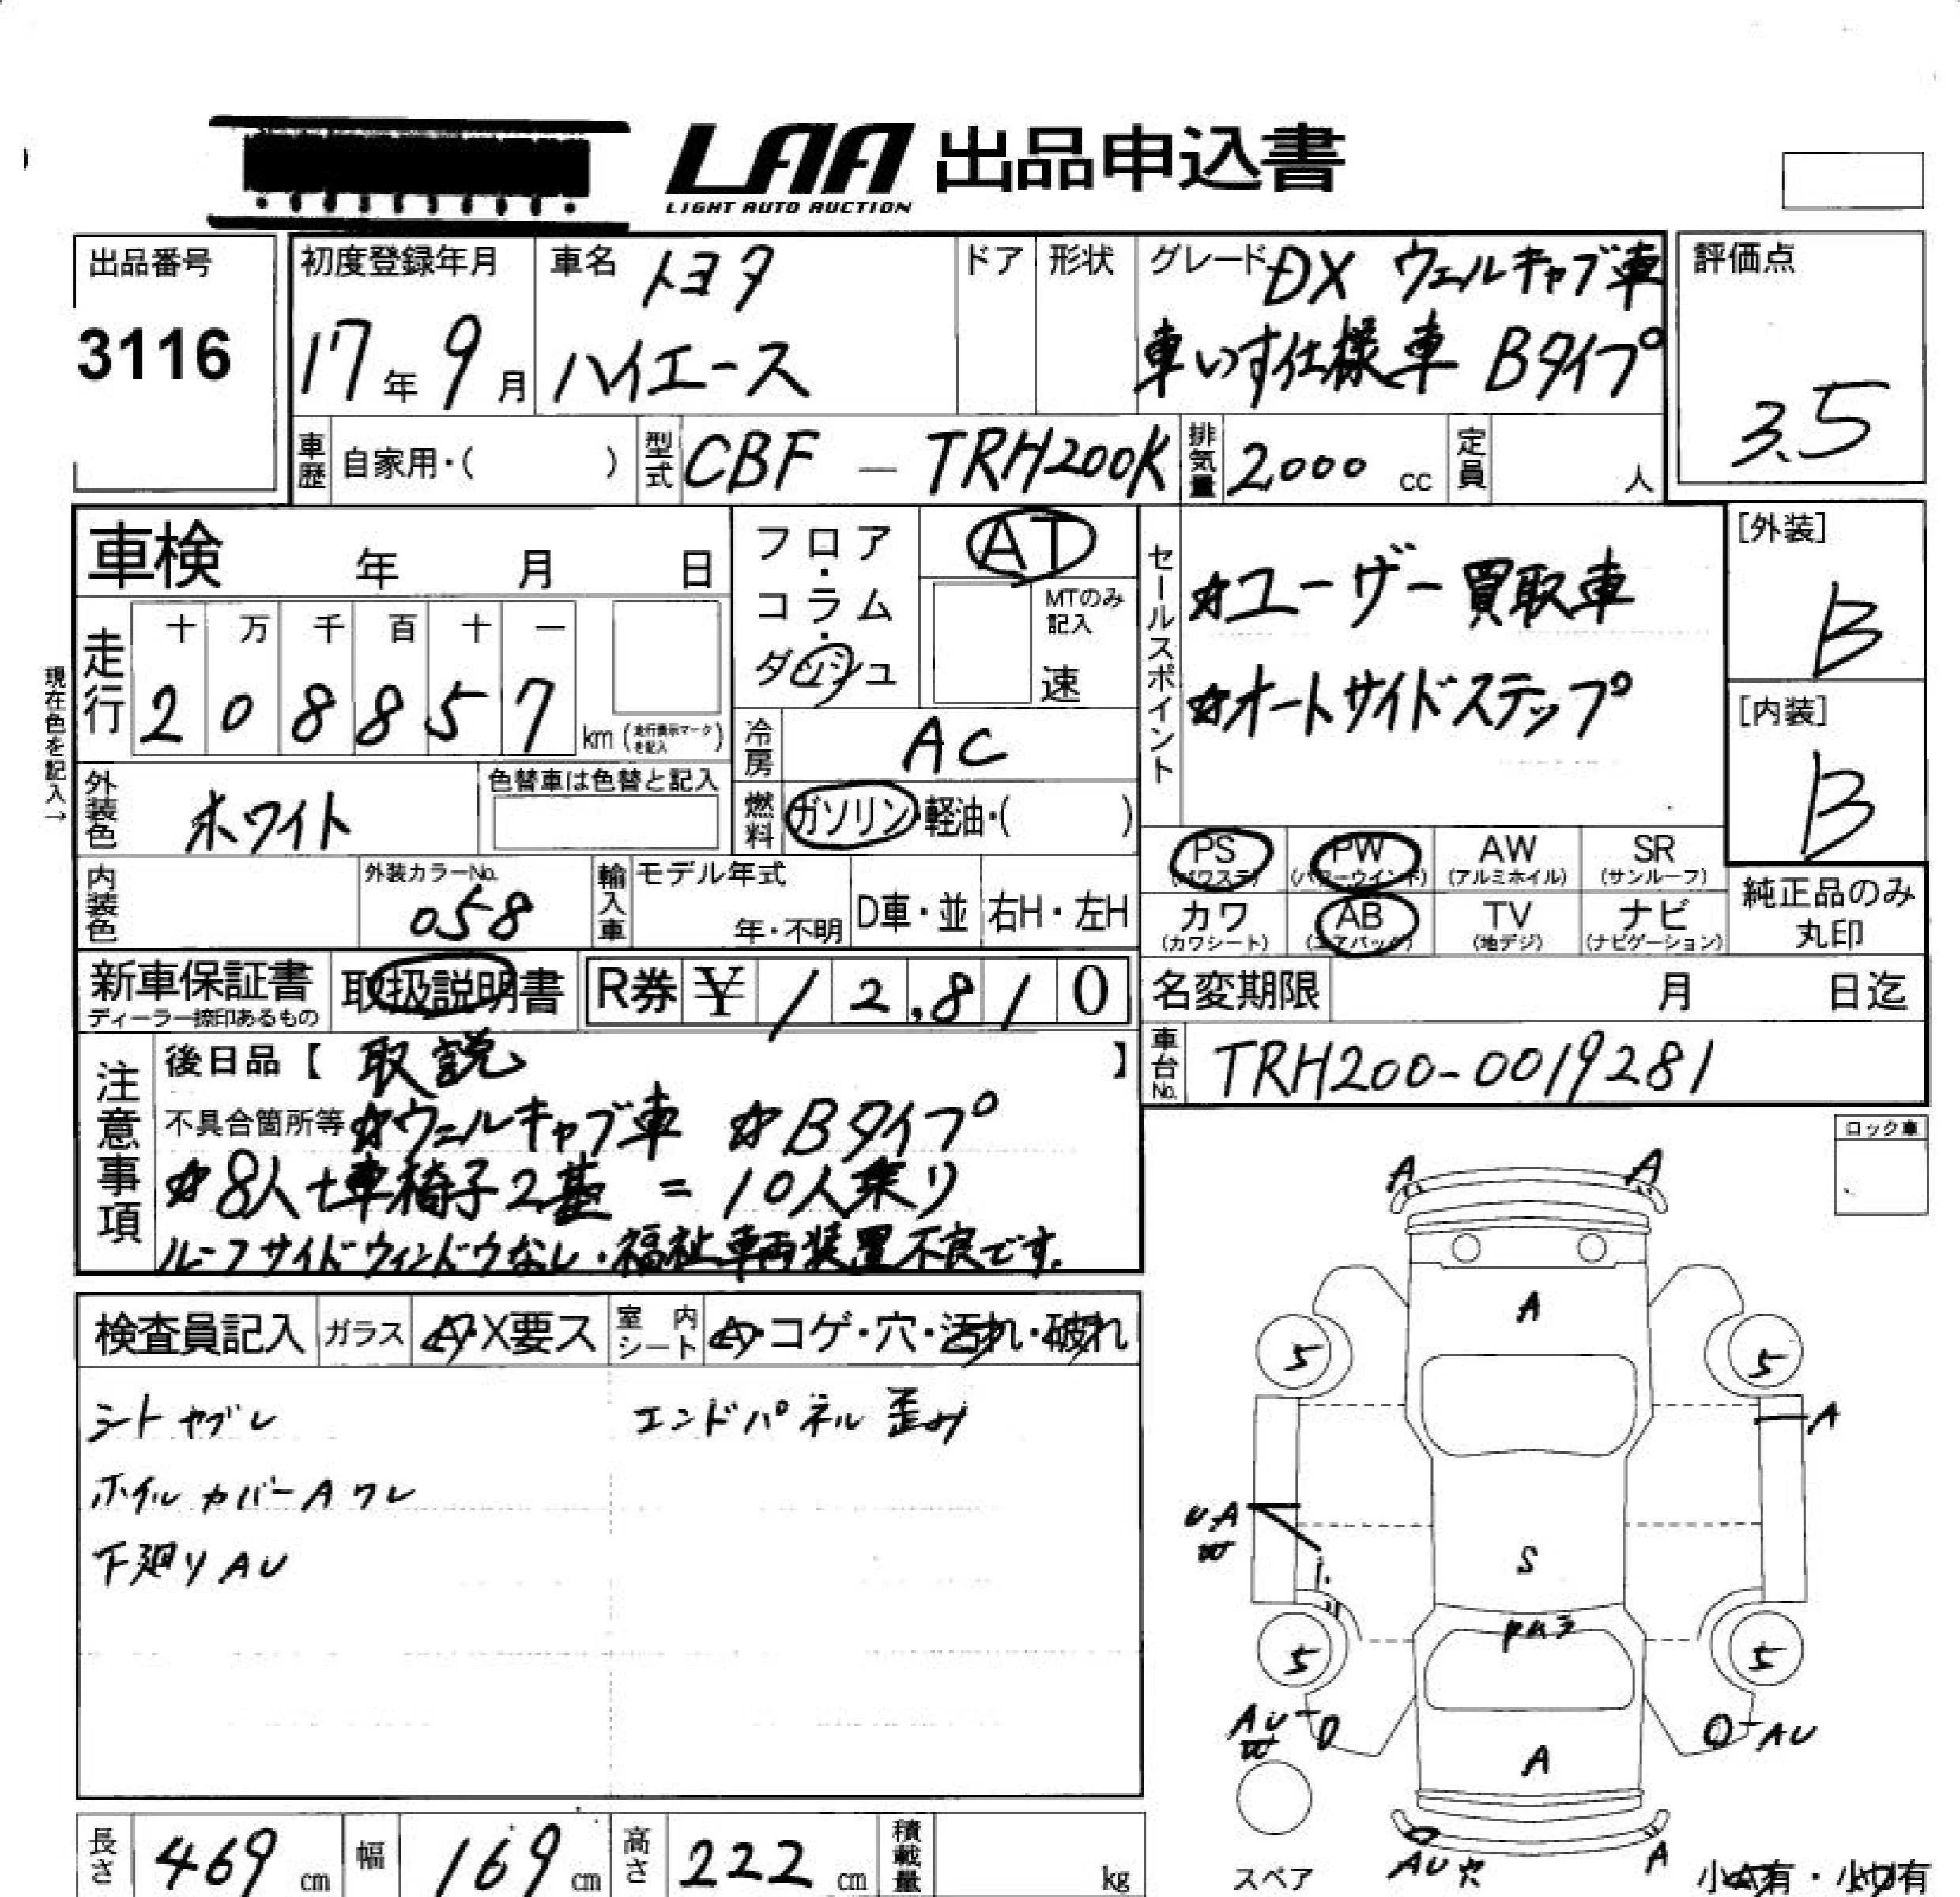 LAA 出品申込書
LIGHT AUTO AUCTION
出品番号
3116
初度登録年月
17年 9月
車名 トヨタ
ハイエース
ドア
形状
グレード DX ウェルキャブ車
車いす仕様車 Bタイプ
評価点
3.5
車歴 自家用・( )
型式 CBF - TRH200K
排気量 2,000 cc
定員 人
車検 年 月 日
フロア・コラム・ダッシュ
AT
MTのみ記入
速
走行
十 万 千 百 十 一
2 0 8 8 5 7 km (走行表示マークを記入)
現在色を記入→
冷房 AC
外装色 ホワイト
色替車は色替と記入
燃料 ガソリン・軽油・( )
セールスポイント
☆ユーザー買取車
☆オートサイドステップ
[外装]
B
[内装]
B
PS (パワステ) PW (パワーウインド) AW (アルミホイル) SR (サンルーフ)
カワ (カワシート) AB (エアバッグ) TV (地デジ) ナビ (ナビゲーション)
純正品のみ丸印
内装色
外装カラーNo.
058
輸入車 モデル年式
年・不明
D車・並 右H・左H
新車保証書
ディーラー捺印あるもの
取扱説明書
R券 ¥ 12,810
名変期限 月 日迄
車台No. TRH200-0019281
注意事項
後日品【 取説 】
不具合箇所等 ☆ウェルキャブ車 ☆Bタイプ
☆8人+車椅子2基 = 10人乗り
ルーフサイドウィンドウなし・福祉車両装置不良です。
ロック車
検査員記入 ガラス A・X要ス 室内シート A・コゲ・穴・汚れ・破れ
シートヤブレ
エンドパネル歪み
ホイルカバーAワレ
下廻りAU
A A
A
5 5
A
UA
W
S
5 5
AU
W
AU
A
AU
A
スペア
小A有・小U有
長さ 469 cm
幅 169 cm
高さ 222 cm
積載量 kg